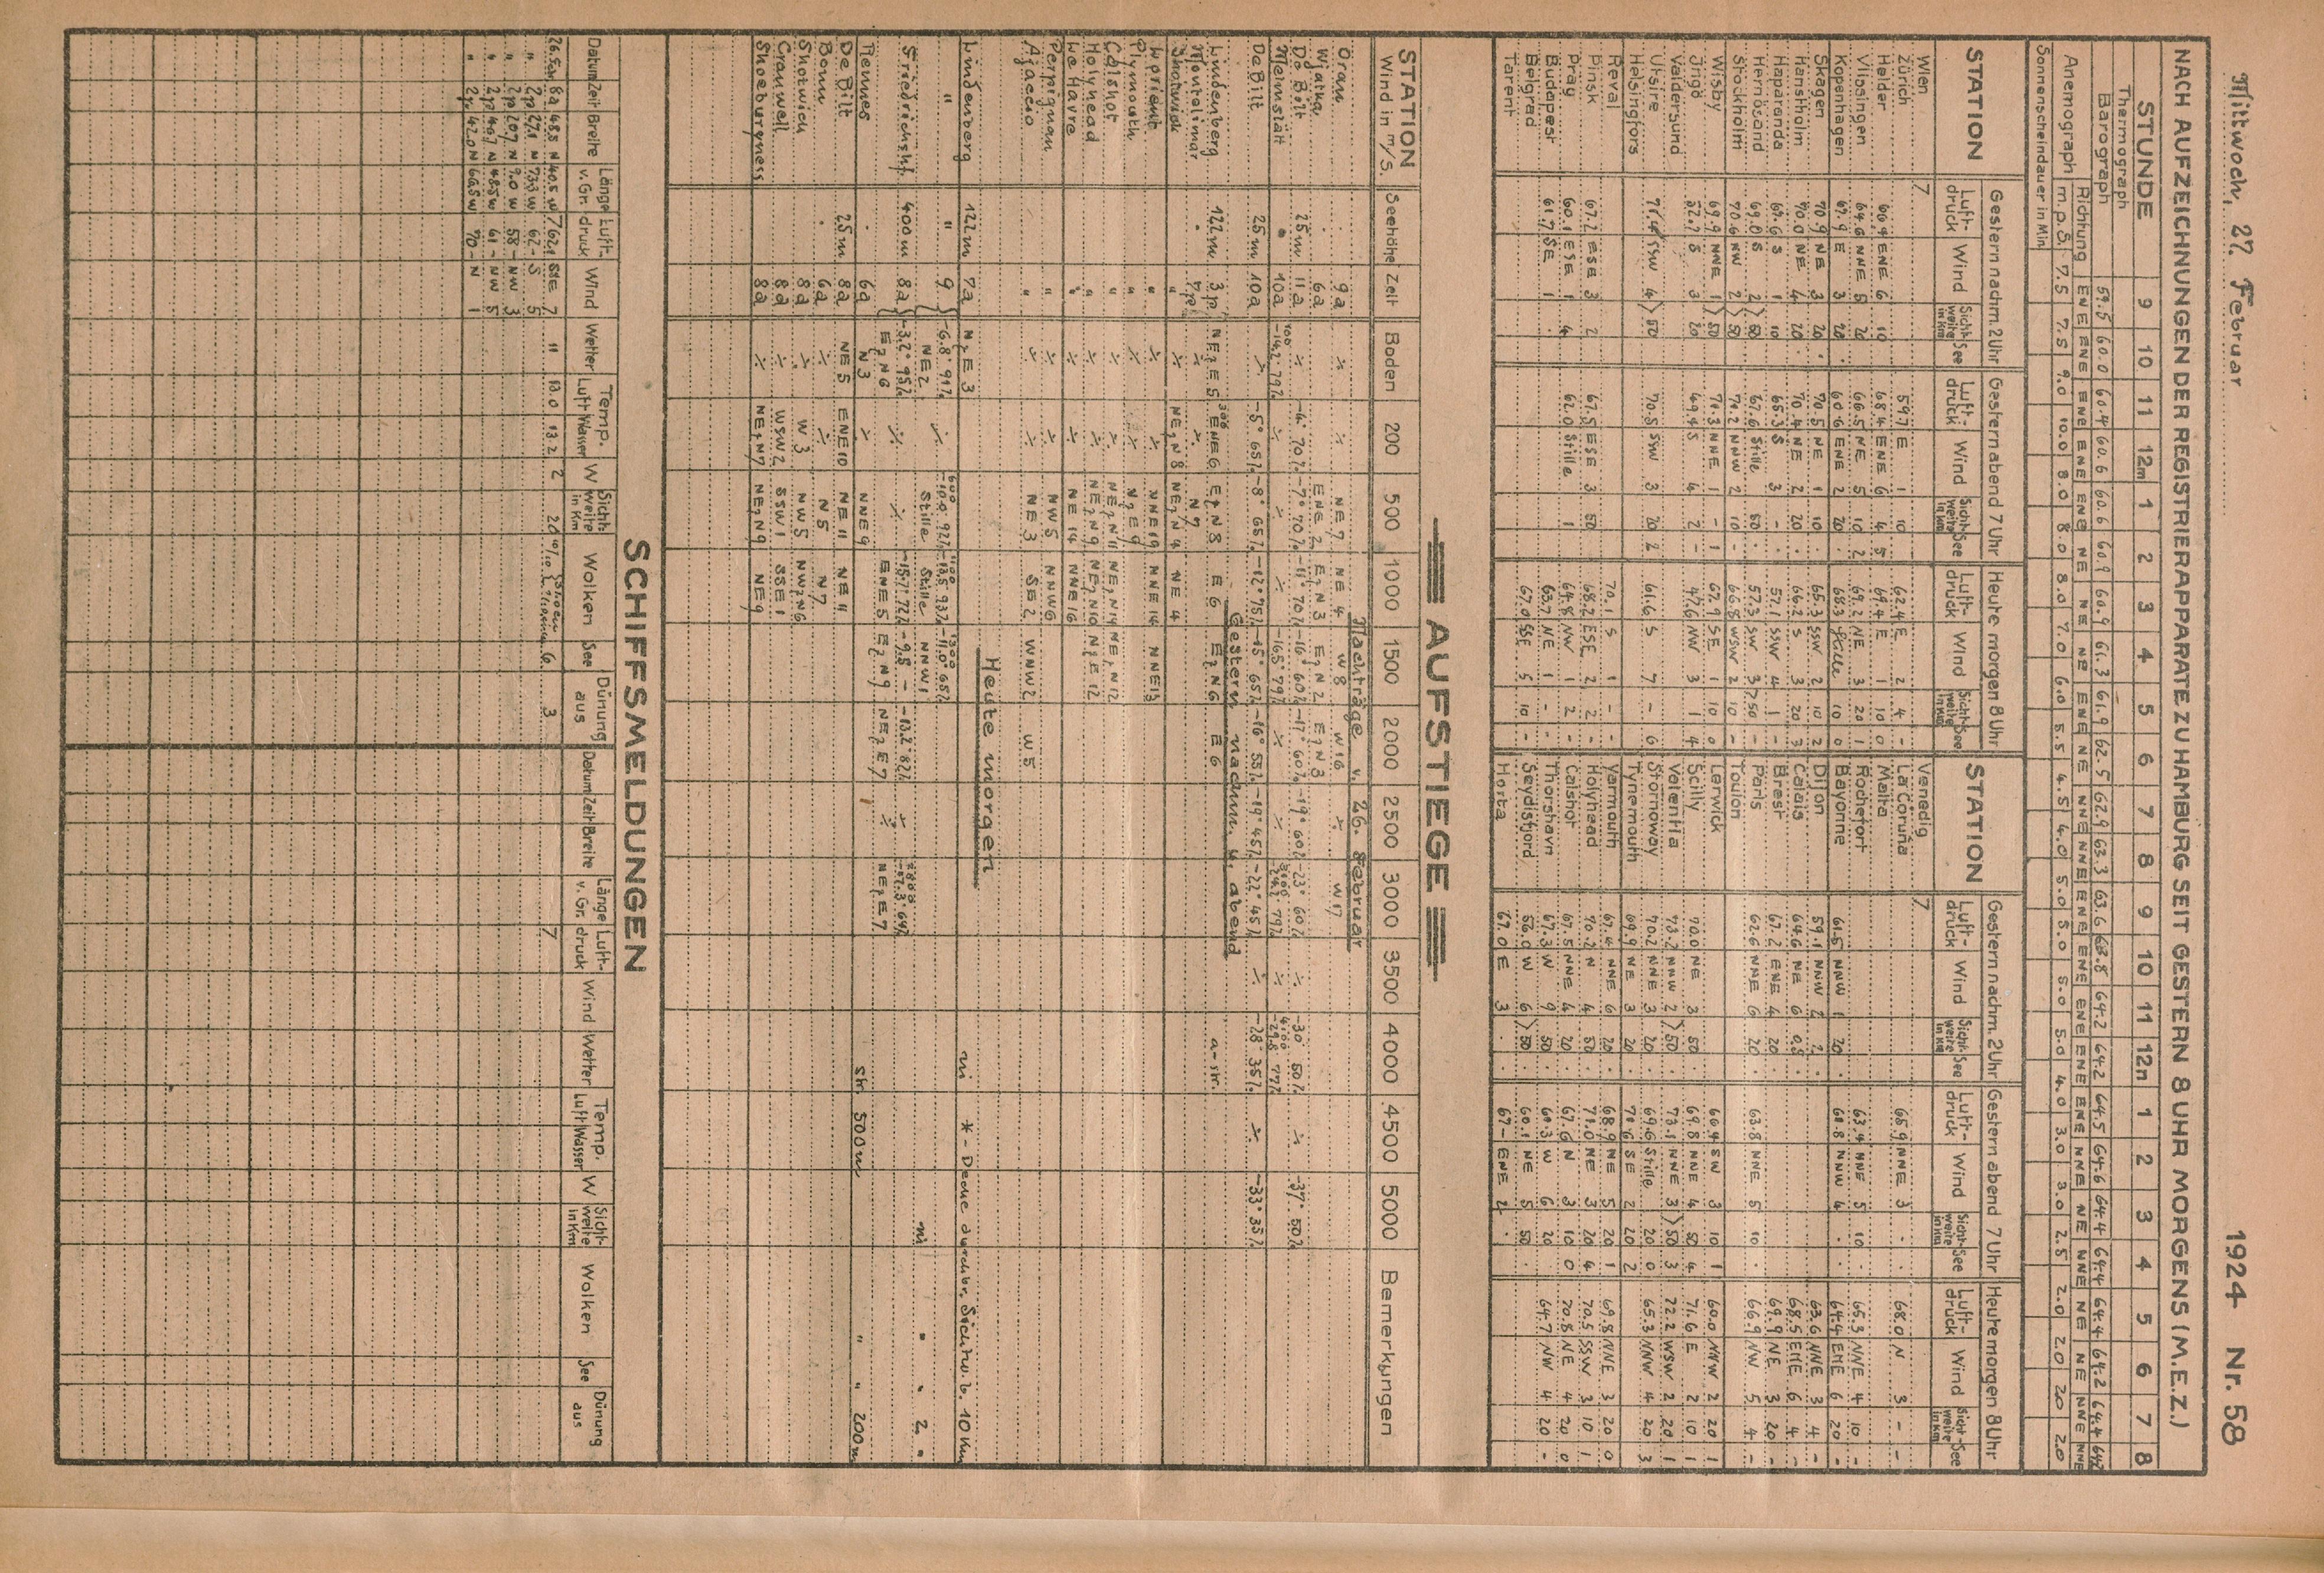 Mittwoch, 27. Februar 1924 Nr. 58
NACH AUFZEICHNUNGEN DER REGISTRIERAPPARATE ZU HAMBURG SEIT GESTERN 8 UHR MORGENS (M.E.Z.)
STUNDE 9 10 11 12m 1 2 3 4 5 6 7 8 9 10 11 12n 1 2 3 4 5 6 7 8
Thermograph
Barograph 59.5 60.0 60.4 60.6 60.6 60.9 60.9 61.3 61.9 62.5 62.9 63.3 63.6 63.8 64.2 64.2 64.5 64.6 64.4 64.4 64.4 64.2 64.4
Anemograph Richtung ENE ENE ENE ENE ENE NE NE NE ENE NE
m.p.S. 7.5 7.5 9.0 10.0 8.0 8.0 8.0 7.0 6.0 5.5 4.5 4.0 5.0 5.0 5.0 5.0 4.0 3.0 3.0 2.5 2.0 2.0 20 2.0
Sonnenscheindauer in Min.
STATION Gestern nachm. 2 Uhr Gestern abend 7 Uhr Heute morgen 8 Uhr STATION Gestern nachm. 2 Uhr Gestern abend 7 Uhr Heute morgen 8 Uhr
Luft-druck Wind Sicht-weite in km See Luft-druck Wind Sicht-weite in km See Luft-druck Wind Sicht-weite in km See Luft-druck Wind Sicht-weite in km See Luft-druck Wind Sicht-weite in km See Luft-druck Wind Sicht-weite in km See
Wien 7 Venedig 7
Zürich 59.7 E 1 10 62.4 E 2 4 - La Coruña 65.9 NNE 3 . . 68.0 N 3 - -
Helder 66.4 ENE 6 10 68.4 ENE 6 4 5 69.4 E 1 10 0 Malta
Vlissingen 64.6 NNE 5 20 66.5 NE 5 10 2 69.2 NE 3 20 1 Rochefort 63.4 NNE 5 10 65.3 NNE 4 10 -
Kopenhagen 67.9 E 3 20 . 60.6 ENE 2 20 . 68.3 Stille 10 0 Bayonne 61.5 NNW 1 20 61.8 NNW 4 . . 64.4 ENE 6 20 -
Skagen 70.9 NE 3 20 . 70.5 NE 1 10 . 65.3 SSW 2 10 2 Dijon 59.1 NNW 2 2 63.6 NNE 3 4 -
Hanstholm 70.0 NE 4 20 . 70.4 NE 2 20 . 66.2 S 3 20 3 Calais 64.6 NE 6 0.5 68.5 ENE 6 4 -
Haparanda 67.6 S 1 10 65.3 S 3 - - 57.1 SSW 4 1 - Brest 67.2 ENE 4 20 69.9 NE 3 20 -
Hernösand 69.0 S 2 >50 67.6 Stille 50 . 57.3 SW 3 >50 - Paris 62.6 NNE 6 20 63.8 NNE 5 10 . 66.9 NW 5 4 -
Stockholm 70.6 NW 2 >50 71.2 NNW 2 10 - 66.8 WSW 2 10 - Toulon
Wisby 69.9 NNE 1 >50 71.3 NNE 1 - 1 67.9 SE 1 10 0 Lerwick 66.4 SW 3 10 1 60.0 NNW 2 20 1
Ingö S 3 20 49.4 S 4 2 - 47.6 NW 3 1 4 Scilly 70.0 NE 3 50 . 69.8 NNE 4 50 4 71.6 E 2 10 1
Valdersund Valentia 73.2 NNW 2 >50 . 73.1 NNE 3 >50 3 72.2 WSW 2 20 1
Utsire 71.4 SSW 4 >50 70.5 SSW 3 20 2 61.6 S 7 - 6 Stornoway 70.2 NNE 3 20 . 69.6 Stille 20 0 65.3 NNW 4 20 3
Helsingfors Tynemouth 69.9 NE 3 20 . 71.6 SE 2 20 2
Reval 70.1 S 1 - - Yarmouth 67.4 NNE 6 20 . 68.9 NE 5 20 1 69.8 NNE 3 20 0
Pinsk 67.2 ESE 3 2 67.5 ESE 3 50 68.2 ESE 2 2 - Holyhead 70.2 N 4 50 . 71.0 NE 3 20 4 70.5 SSW 3 10 1
Prag 60.1 ESE 1 4 62.0 Stille 1 64.8 NW 1 2 - Calshot 67.5 NNE 4 20 . 67.6 N 3 10 0 70.8 NE 4 20 0
Budapest 61.7 SE 1 . 63.7 NE 1 - - Thorshavn 67.3 W 9 50 . 61.3 W 6 20 . 64.7 NW 4 20 -
Belgrad 67.0 SSE 5 10 - Seydisfjord 56.0 W 6 >50 . 60.1 NE 5 50 .
Tarent Horta 67.0 E 3 . . 67- ENE 2 .
AUFSTIEGE
STATION Wind in m/s. Seehöhe Zeit Boden 200 500 1000 1500 2000 2500 3000 3500 4000 4500 5000 Bemerkungen
Nachträge v. 26. Februar
Oran . 9a ⁒ ⁒ NE 7 NE 4 W 8 W 16 ⁒ W 17
Wiatka . 6a ENE 2 E z N 3 E z N 2 E z N 3
De Bilt 25m 11a ⁒ -4° 70% -7° 70% -11° 70% -16° 60% -17° 60% -19° 60% -23° 60% ⁒ -30 50% ⁒ -37° 50%
10a -4.2 79% ⁒ ⁒ ⁒ -16.5 79% ⁒ ⁒
De Bilt 25m 10a ⁒ -5° 65% -8° 65% -12° 75% -15° 65% -16° 55% -19° 45% -22° 45% ⁒ -28° 35% ⁒ -33° 35%
Gestern nachm. u. abend
Lindenberg 122m 3p NE z E 5 ENE 6 E z N 8 E 6 E z N 6 E 6 a-str.
Montelimar . 7p ⁒ ⁒ N 7
Shotwick " ⁒ NE z N 8 NE z N 4 NE 4
Lorient " ⁒ ⁒ NNE 19 NNE 14 NNE 13
Plymouth " ⁒ ⁒ N z E 9
Calshot " ⁒ ⁒ NE z N 11 NE z N 14 NE z N 12
Holyhead " ⁒ ⁒ NE z N 9 NE z N 10 N z E 12
Le Havre " ⁒ ⁒ NE 14 NNE 16
Perpignan " ⁒ ⁒ NW 5 NNW 6
Ajaccio " ⁒ ⁒ NE 3 SE 2 WNW 2 W 5
Heute morgen
Lindenberg 122m 7a N z E 3 ni *-Decke durchbr. Sichtw. b. 10 km
" " 9 -6.8° 91% ⁒ 600 -10.0 92% 1100 -13.5 93% 1300 -11.0° 65%
NE 2 Stille Stille NNW 1 ni " " 2 "
Friedrichshf. 400m 8a -3.2° 95% ⁒ ⁒ -15.7 72% -9.8 - -13.2° 82% ⁒
E z N 6 ENE 5 E z N 9 NE z E 7 ⁒ NE z E 7
Rennes . 6a N 3 ⁒ NNE 9 str. 500m " " 200m
De Bilt 25m 8a NE 5 ENE 10 NE 11 NE 11
Bonn . 6a ⁒ ⁒ N 5 N 7
Shotwich 8a ⁒ W 3 NW 5 NW z N 6
Cranwell 8a ⁒ WSW 2 SSW 1 SSE 1
Shoeburyness 8a ⁒ NE z N 7 NE z N 9 NE 9
SCHIFFSMELDUNGEN
Datum Zeit Breite Länge v. Gr. Luft-druck Wind Wetter Temp. Luft Wasser W Sicht-weite in Km Wolken See Dünung aus Datum Zeit Breite Länge v. Gr. Luft-druck Wind Wetter Temp. Luft Wasser W Sicht-weite in Km Wolken See Dünung aus
26. Febr. 8a 48.5 N 40.5 W 762.1 SSE 7 11 13.0 13.2 2 20 6 3 7
" 2p 27.1 N 73.3 W 62- S 5
" 2p 20.7 N 9.0 W 58 - NW 3
" 2p 40.7 N 48.5 W 61 - NW 5
" 2p 42.0 N 60.5 W 70 - N 1